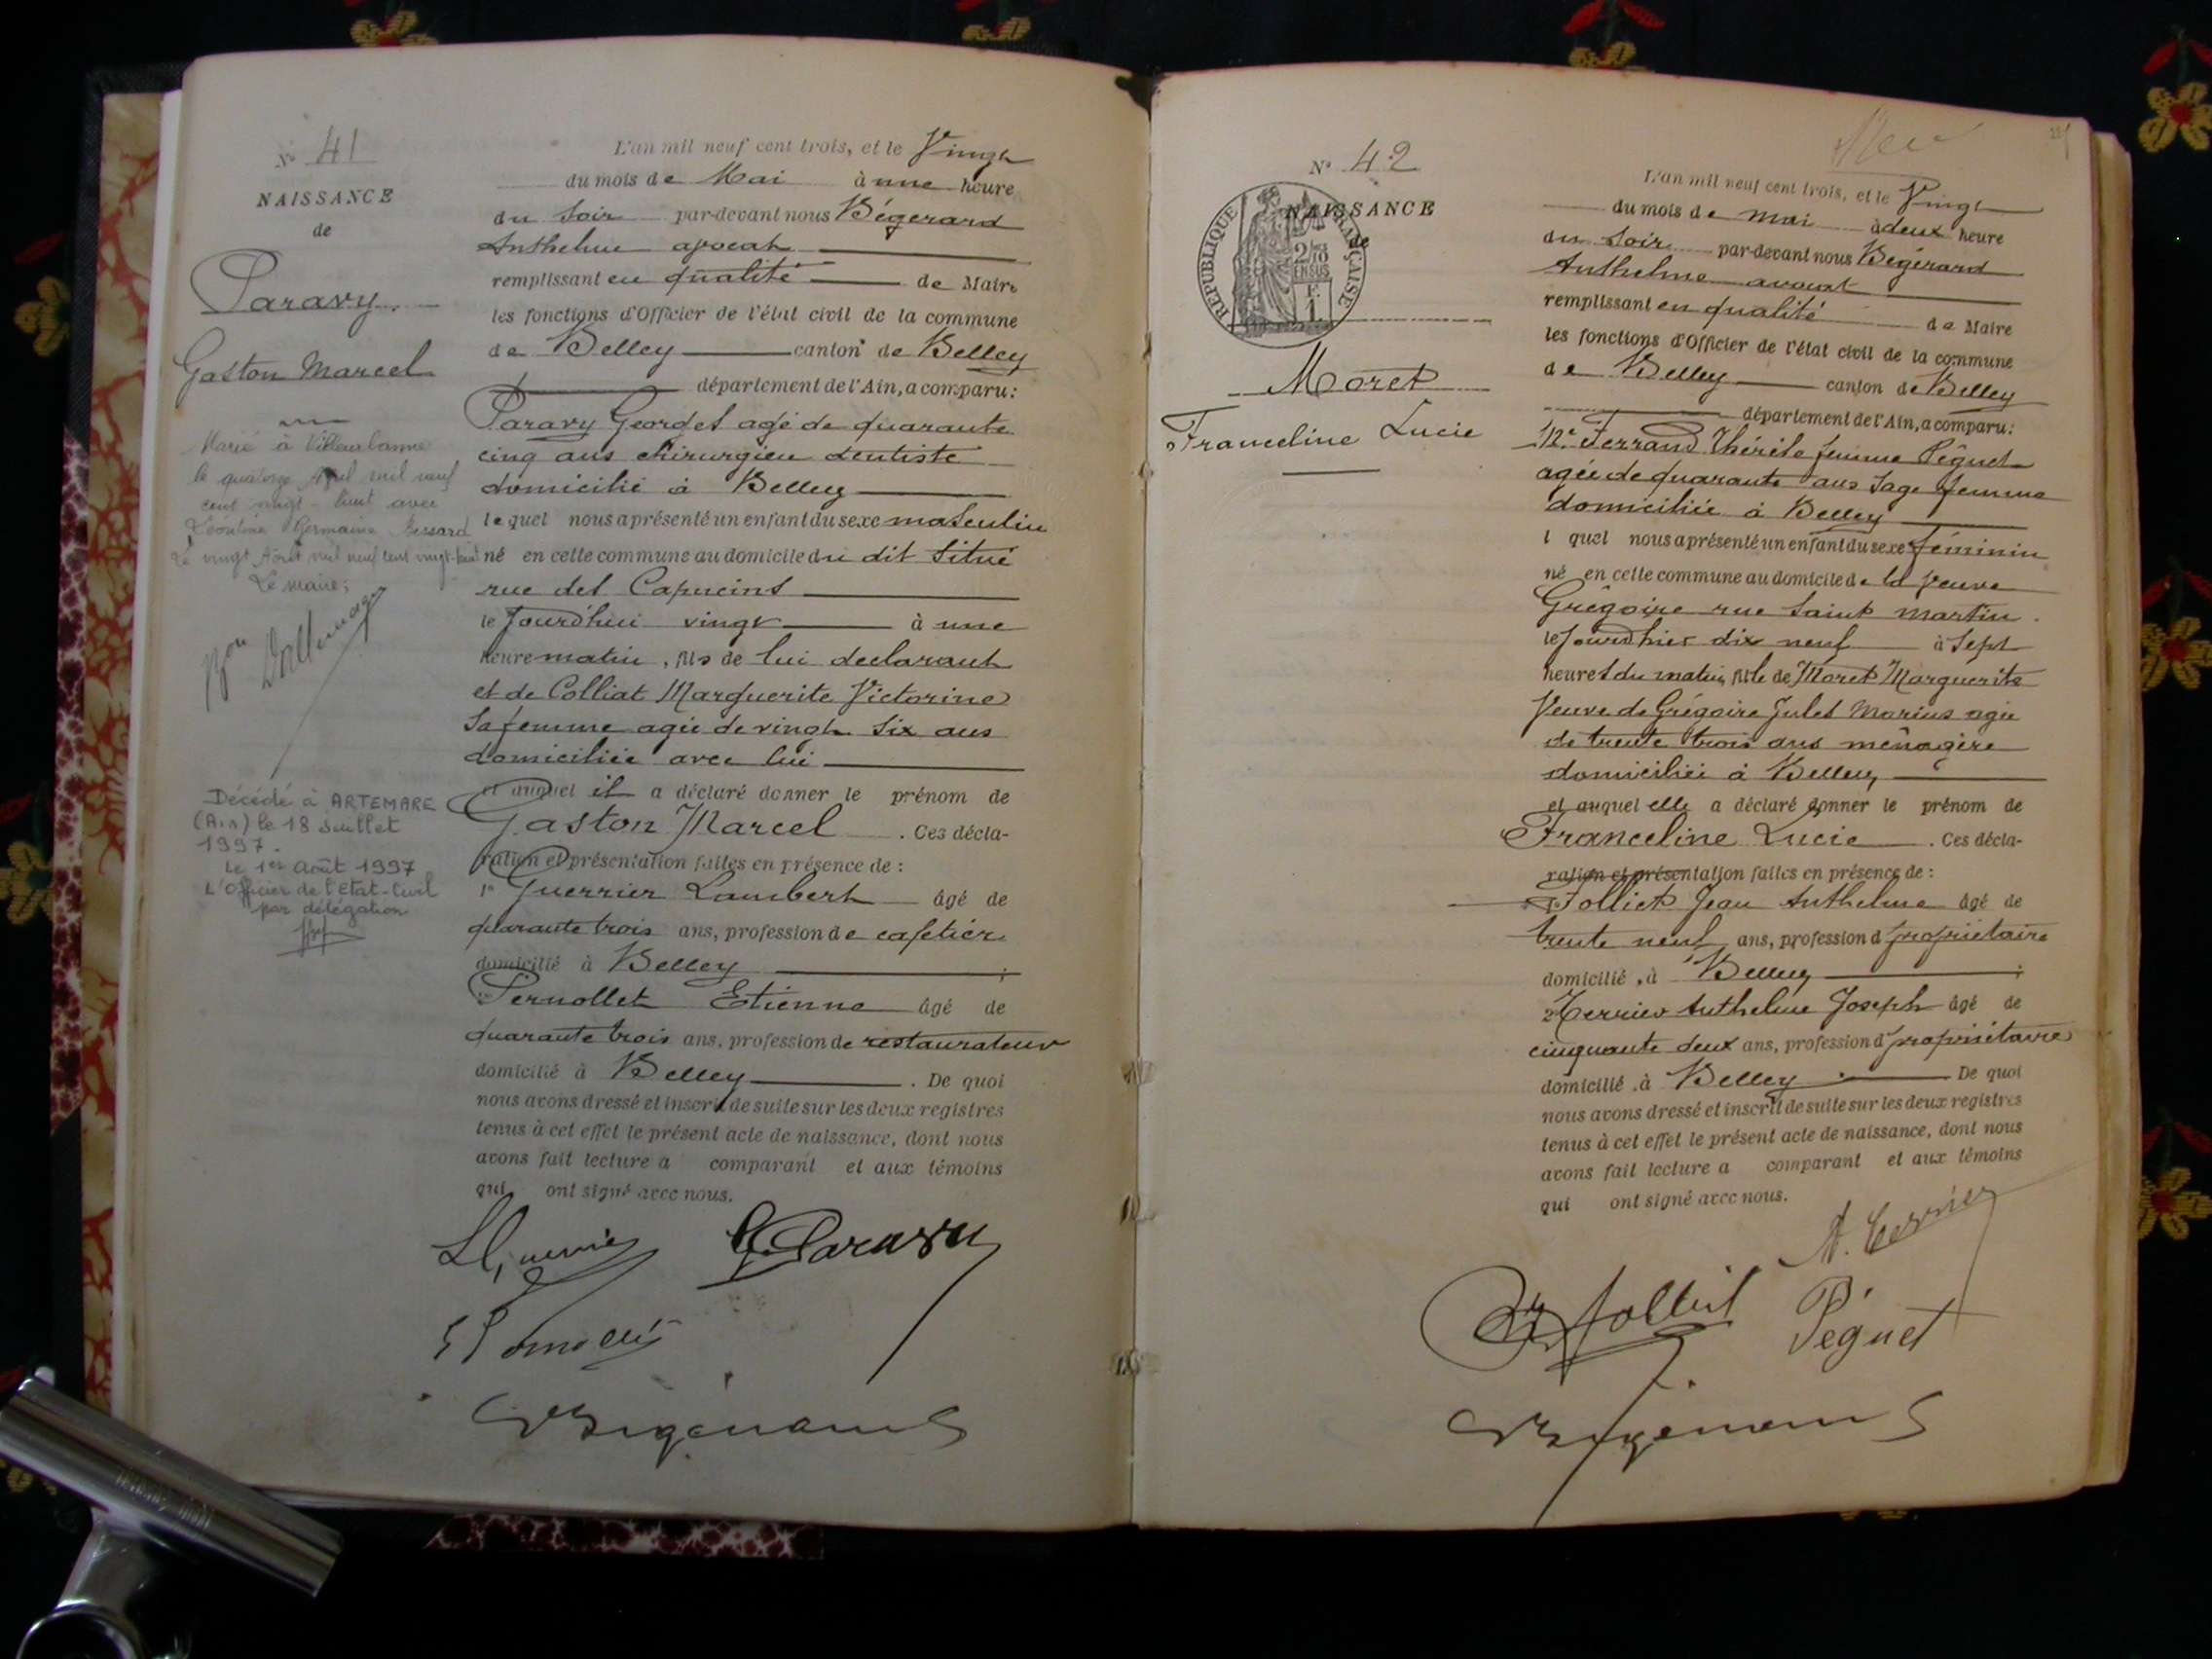 N° 41
NAISSANCE
de
Paravy
Gaston Marcel
Marié à Villeurbanne
le quatorze Avril mil neuf
cent vingt-huit avec
Léontine Germaine Bessard
Le vingt Août mil neuf cent vingt-huit
Le maire;
Décédé à ARTEMARE
(Ain) le 18 Juillet
1997.
Le 1er Août 1997
L'Officier de l'Etat-Civil
par délégation
L'an mil neuf cent trois, et le Vingt
du mois de Mai à une heure
du soir par-devant nous Bégerard
Anthelme avocat
remplissant en qualité de Maire
les fonctions d'Officier de l'état civil de la commune
de Belley canton de Belley
département de l'Ain, a comparu:
Paravy Georges agé de quarante
cinq ans chirurgien dentiste
domicilié à Belley
lequel nous a présenté un enfant du sexe masculin
né en cette commune au domicile du dit situé
rue des Capucins
le Jourd'hui vingt à une
heure matin, fils de lui declarant
et de Colliat Marguerite Victorine
sa femme agée de vingt six ans
domiciliée avec lui
et auquel il a déclaré donner le prénom de
Gaston Marcel. Ces décla-
ration et présentation faites en présence de :
1° Guerrier Lambert âgé de
quarante trois ans, profession de cafetier
domicilié à Belley ;
Pernollet Etienne âgé de
quarante trois ans, profession de restaurateur
domicilié à Belley. De quoi
nous avons dressé et inscrit de suite sur les deux registres
tenus à cet effet le présent acte de naissance, dont nous
avons fait lecture a comparant et aux témoins
qui ont signé avec nous.
L Guerrier G Paravy
E Pernollet
Bégerard
N° 42
NAISSANCE
de
RÉPUBLIQUE FRANÇAISE
2/10
EN SUS
F.
1.
Moret
Franceline Lucie
L'an mil neuf cent trois, et le Vingt
du mois de mai à deux heure
du soir par-devant nous Bégérard
Anthelme avocat
remplissant en qualité de Maire
les fonctions d'Officier de l'état civil de la commune
de Belley canton de Belley
département de l'Ain, a comparu:
Ferrand Thérèse femme Péguet
agée de quarante ans sage femme
domiciliée à Belley
l quel nous a présenté un enfant du sexe féminin
né en cette commune au domicile de la veuve
Grégoire rue Saint Martin.
le Jourd'hier dix neuf à sept
heures du matin, fille de Moret Marguerite
Veuve de Grégoire Jules Marius agée
de trente trois ans ménagère
domiciliée à Belley,
et auquel elle a déclaré donner le prénom de
Franceline Lucie. Ces décla-
ration et présentation faites en présence de :
Folliet Jean Anthelme âgé de
trente neuf ans, profession d propriétaire
domicilié à Belley ;
2° Terrier Anthelme Joseph âgé de
cinquante deux ans, profession d propriétaire
domicilié à Belley. De quoi
nous avons dressé et inscrit de suite sur les deux registres
tenus à cet effet le présent acte de naissance, dont nous
avons fait lecture a comparant et aux témoins
qui ont signé avec nous.
A. Terrier
Folliet Péguet
Bégerard